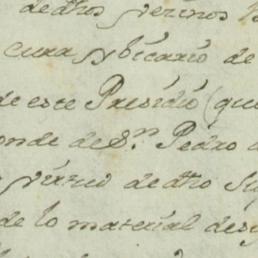 de dhos vecinos
cura y bicario de
de este Presidio (que
onde de Sn. Pedro
virtud de dho
de lo material des